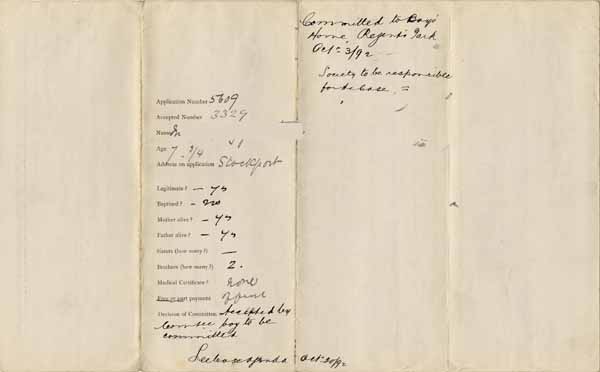 Committed to Boys'
Home, Regent's Park
Oct. 3/92
Society to be responsible
for the case.
Application Number 5609
Accepted Number 3329
Name
Age 7 3/4
Address on application Stockport
Legitimate? – Yes
Baptised? – no
Mother alive? – Yes
Father alive? – Yes
Sisters (how many?) —
Brothers (how many?) 2.
Medical Certificate?
Free or part payment
Decision of Committee Accepted by
Com'tee boy to be
committed
Oct 20/92